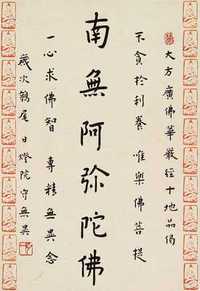 大方廣佛華嚴經十地品偈
不貪於利養 唯樂佛菩提
南無阿弥陀佛
一心求佛智 專精無異念
歲次鶉尾 日燈院